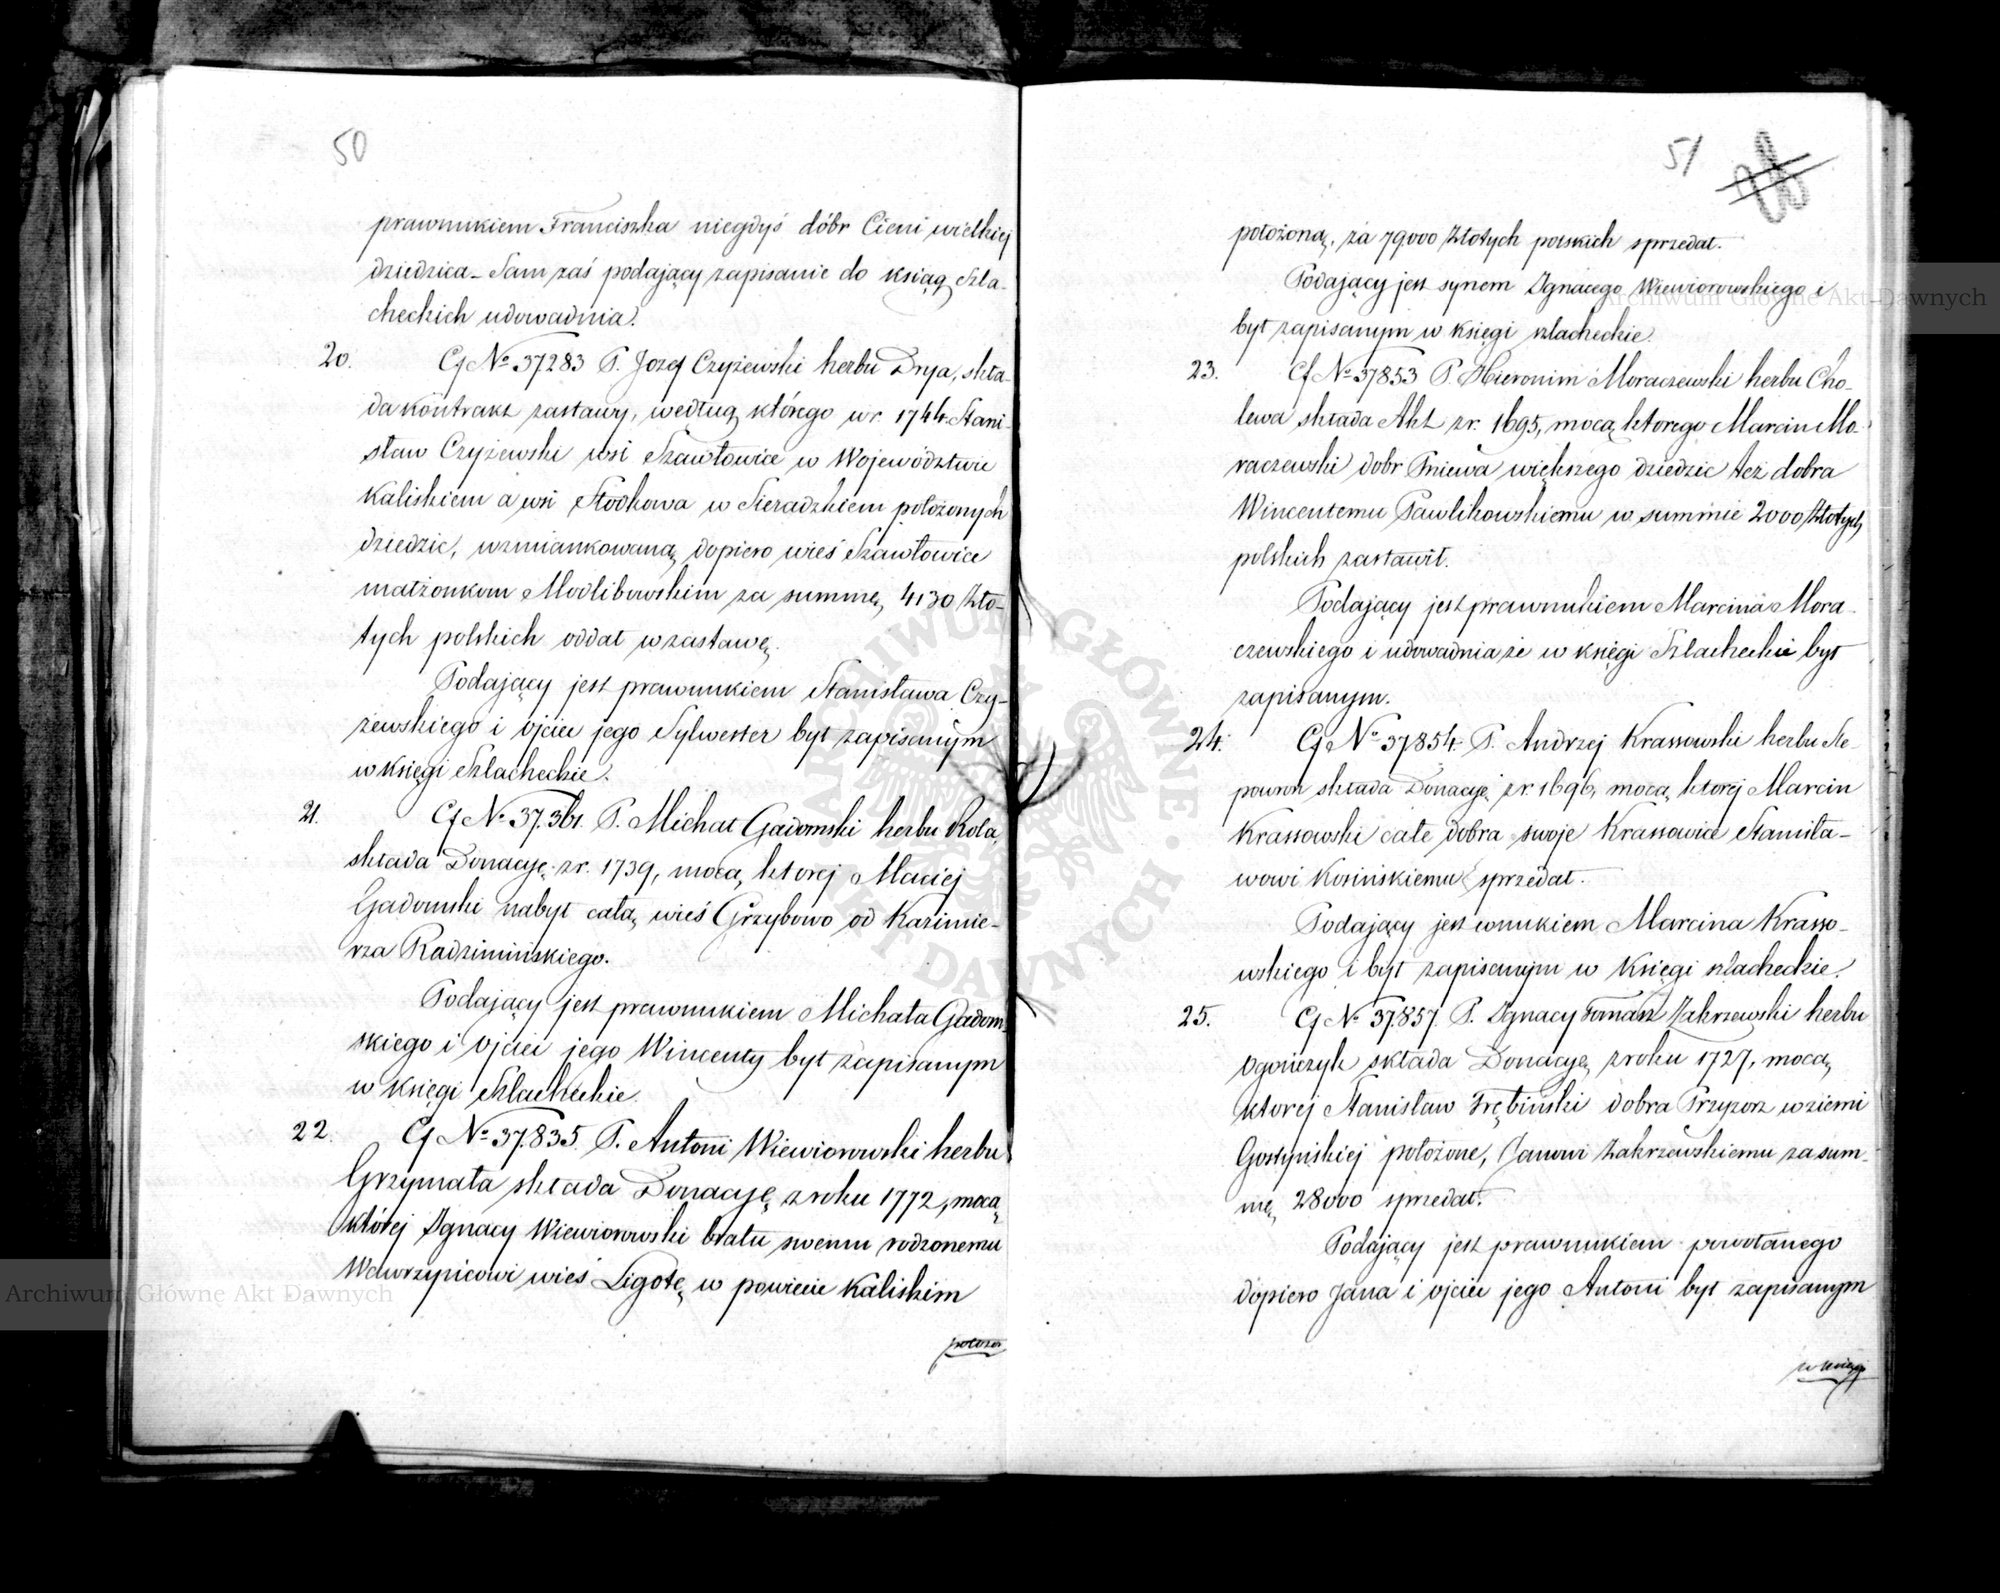 50
prawnukiem Franciszka niegdyś dóbr Cieni wielkiej
dziedzica – Sam zaś podający zapisanie do ksiąg Szla-
checkich udowadnia.
20. Cf No 37283 P. Jozef Czyżewski herbu Drya, skła-
da kontrakt zastawy, według którego w r. 1744 Stani-
sław Czyżewski wsi Szawłowice w Województwie
Kaliskiem a wsi Stodkowa w Sieradzkiem położonych
dziedzic, wzmiankowaną dopiero wieś Szawłowice
małżonkom Modlibowskim za summę 4130 Zło-
tych polskich oddał w zastawę.
Podający jest prawnukiem Stanisława Czy-
żewskiego i ojciec jego Sylwester był zapisanym
w księgi Szlacheckie.
21. Cf No 37.361. P. Michał Gadomski herbu Rola,
składa Donacyę z r. 1739, mocą ktorej Maciej
Gadomski nabył całą wieś Grzybowo od Kazimie-
rza Radzimińskiego.
Podający jest prawnukiem Michała Gadom-
skiego i ojciec jego Wincenty był zapisanym
w księgi Szlacheckie.
22. Cf No 37.835 P. Antoni Wiewiorowski herbu
Grzymała składa Donacyę z roku 1772, mocą
której Ignacy Wiewiorowski bratu swemu rodzonemu
Wawrzyńcowi wieś Ligotę w powiecie Kaliskim
położo
51
położoną, za 79000 Złotych polskich sprzedał.
Podający jest synem Ignacego Wiewiorowskiego i
był zapisanym w księgi szlacheckie.
23. Cf No 37853 P. Hieronim Moraczewski herbu Cho-
lewa składa Akt z r. 1695, mocą ktorego Marcin Mo-
raczewski dobr Pniewa większego dziedzic też dobra
Wincentemu Pawlikowskiemu w summie 2000 Złotych
polskich zastawił.
Podający jest prawnukiem Marcina Mora-
czewskiego i udowadnia że w księgi Szlacheckie był
zapisanym.
24. Cf No 37854 P. Andrzej Krassowski herbu Śle-
powron składa Donacyę z r. 1696, mocą ktorej Marcin
Krassowski całe dobra swoje Krassowice Stanisła-
wowi Kosińskiemu sprzedał.
Podający jest wnukiem Marcina Krasso-
wskiego i był zapisanym w Księgi szlacheckie.
25. Cf No 37.857. P. Ignacy Tomasz Zakrzewski herbu
Ogończyk składa Donacyę z roku 1727, mocą
ktorej Stanisław Trębiński dobra Przyzorz w ziemi
Gostyńskiej położone, Janowi Zakrzewskiemu za sum-
mę 28000 sprzedał.
Podający jest prawnukiem powołanego
dopiero Jana i ojciec jego Antoni był zapisanym
w księgi
Archiwum Główne Akt Dawnych
Archiwum Główne Akt Dawnych
ARCHIWUM GŁÓWNE AKT DAWNYCH